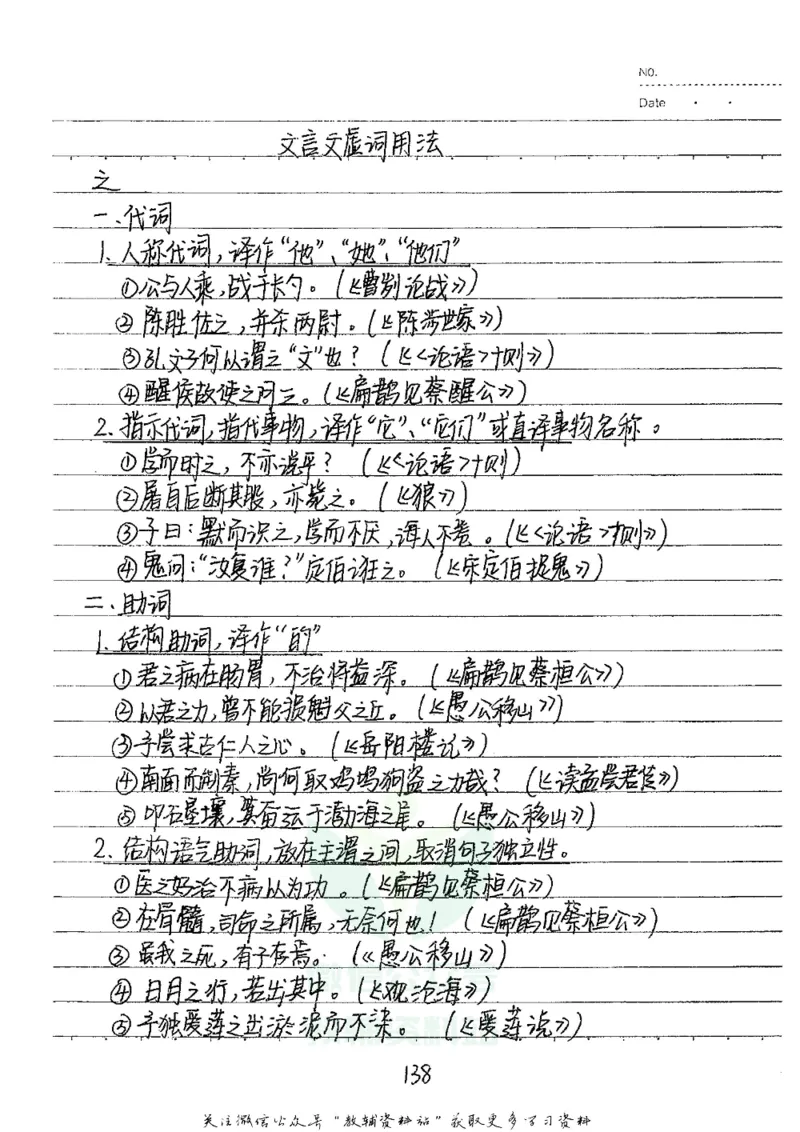 NO.
Date
文言文虚词用法
之
一、代词
1. 人称代词，译作“他”、“她”、“他们”
①公与人乘，战于长勺。（《曹刿论战》）
②陈胜佐之，并杀两尉。（《陈涉世家》）
③孔文子何以谓之“文”也？（《<论语>十则》）
④醒侯故使之问之。（《扁鹊见蔡醒公》）
2. 指示代词，指代事物，译作“它”、“它们”或直译事物名称。
①学而时之，不亦说乎？（《<论语>十则）
②屠自后断其股，亦毙之。（《狼》）
③子曰：默而识之，学而不厌，诲人不卷。（《<论语>十则》）
④鬼问：“汝复谁？”定伯诳之。（《宋定伯捉鬼》）
二、助词
1. 结构助词，译作“的”
①君之病在肠胃，不治将益深。（《扁鹊见蔡桓公》）
②以君之力，曾不能损魁父之丘。（《愚公移山》）
③予尝求古仁人之心。（《岳阳楼记》）
④南面而制秦，尚何取鸡鸣狗盗之力哉？（《读孟尝君传》）
⑤叩石垦壤，箕畚运于渤海之尾。（《愚公移山》）
2. 结构语气助词，放在主谓之间，取消句子独立性。
①医之好治不病以为功。（《扁鹊见蔡桓公》）
②在骨髓，司命之所属，无奈何也！（《扁鹊见蔡桓公》）
③虽我之死，有子存焉。（《愚公移山》）
④日月之行，若出其中。（《观沧海》）
⑤予独爱莲之出淤泥而不染。（《爱莲说》）
138
关注微信公众号“教辅资料站”获取更多学习资料